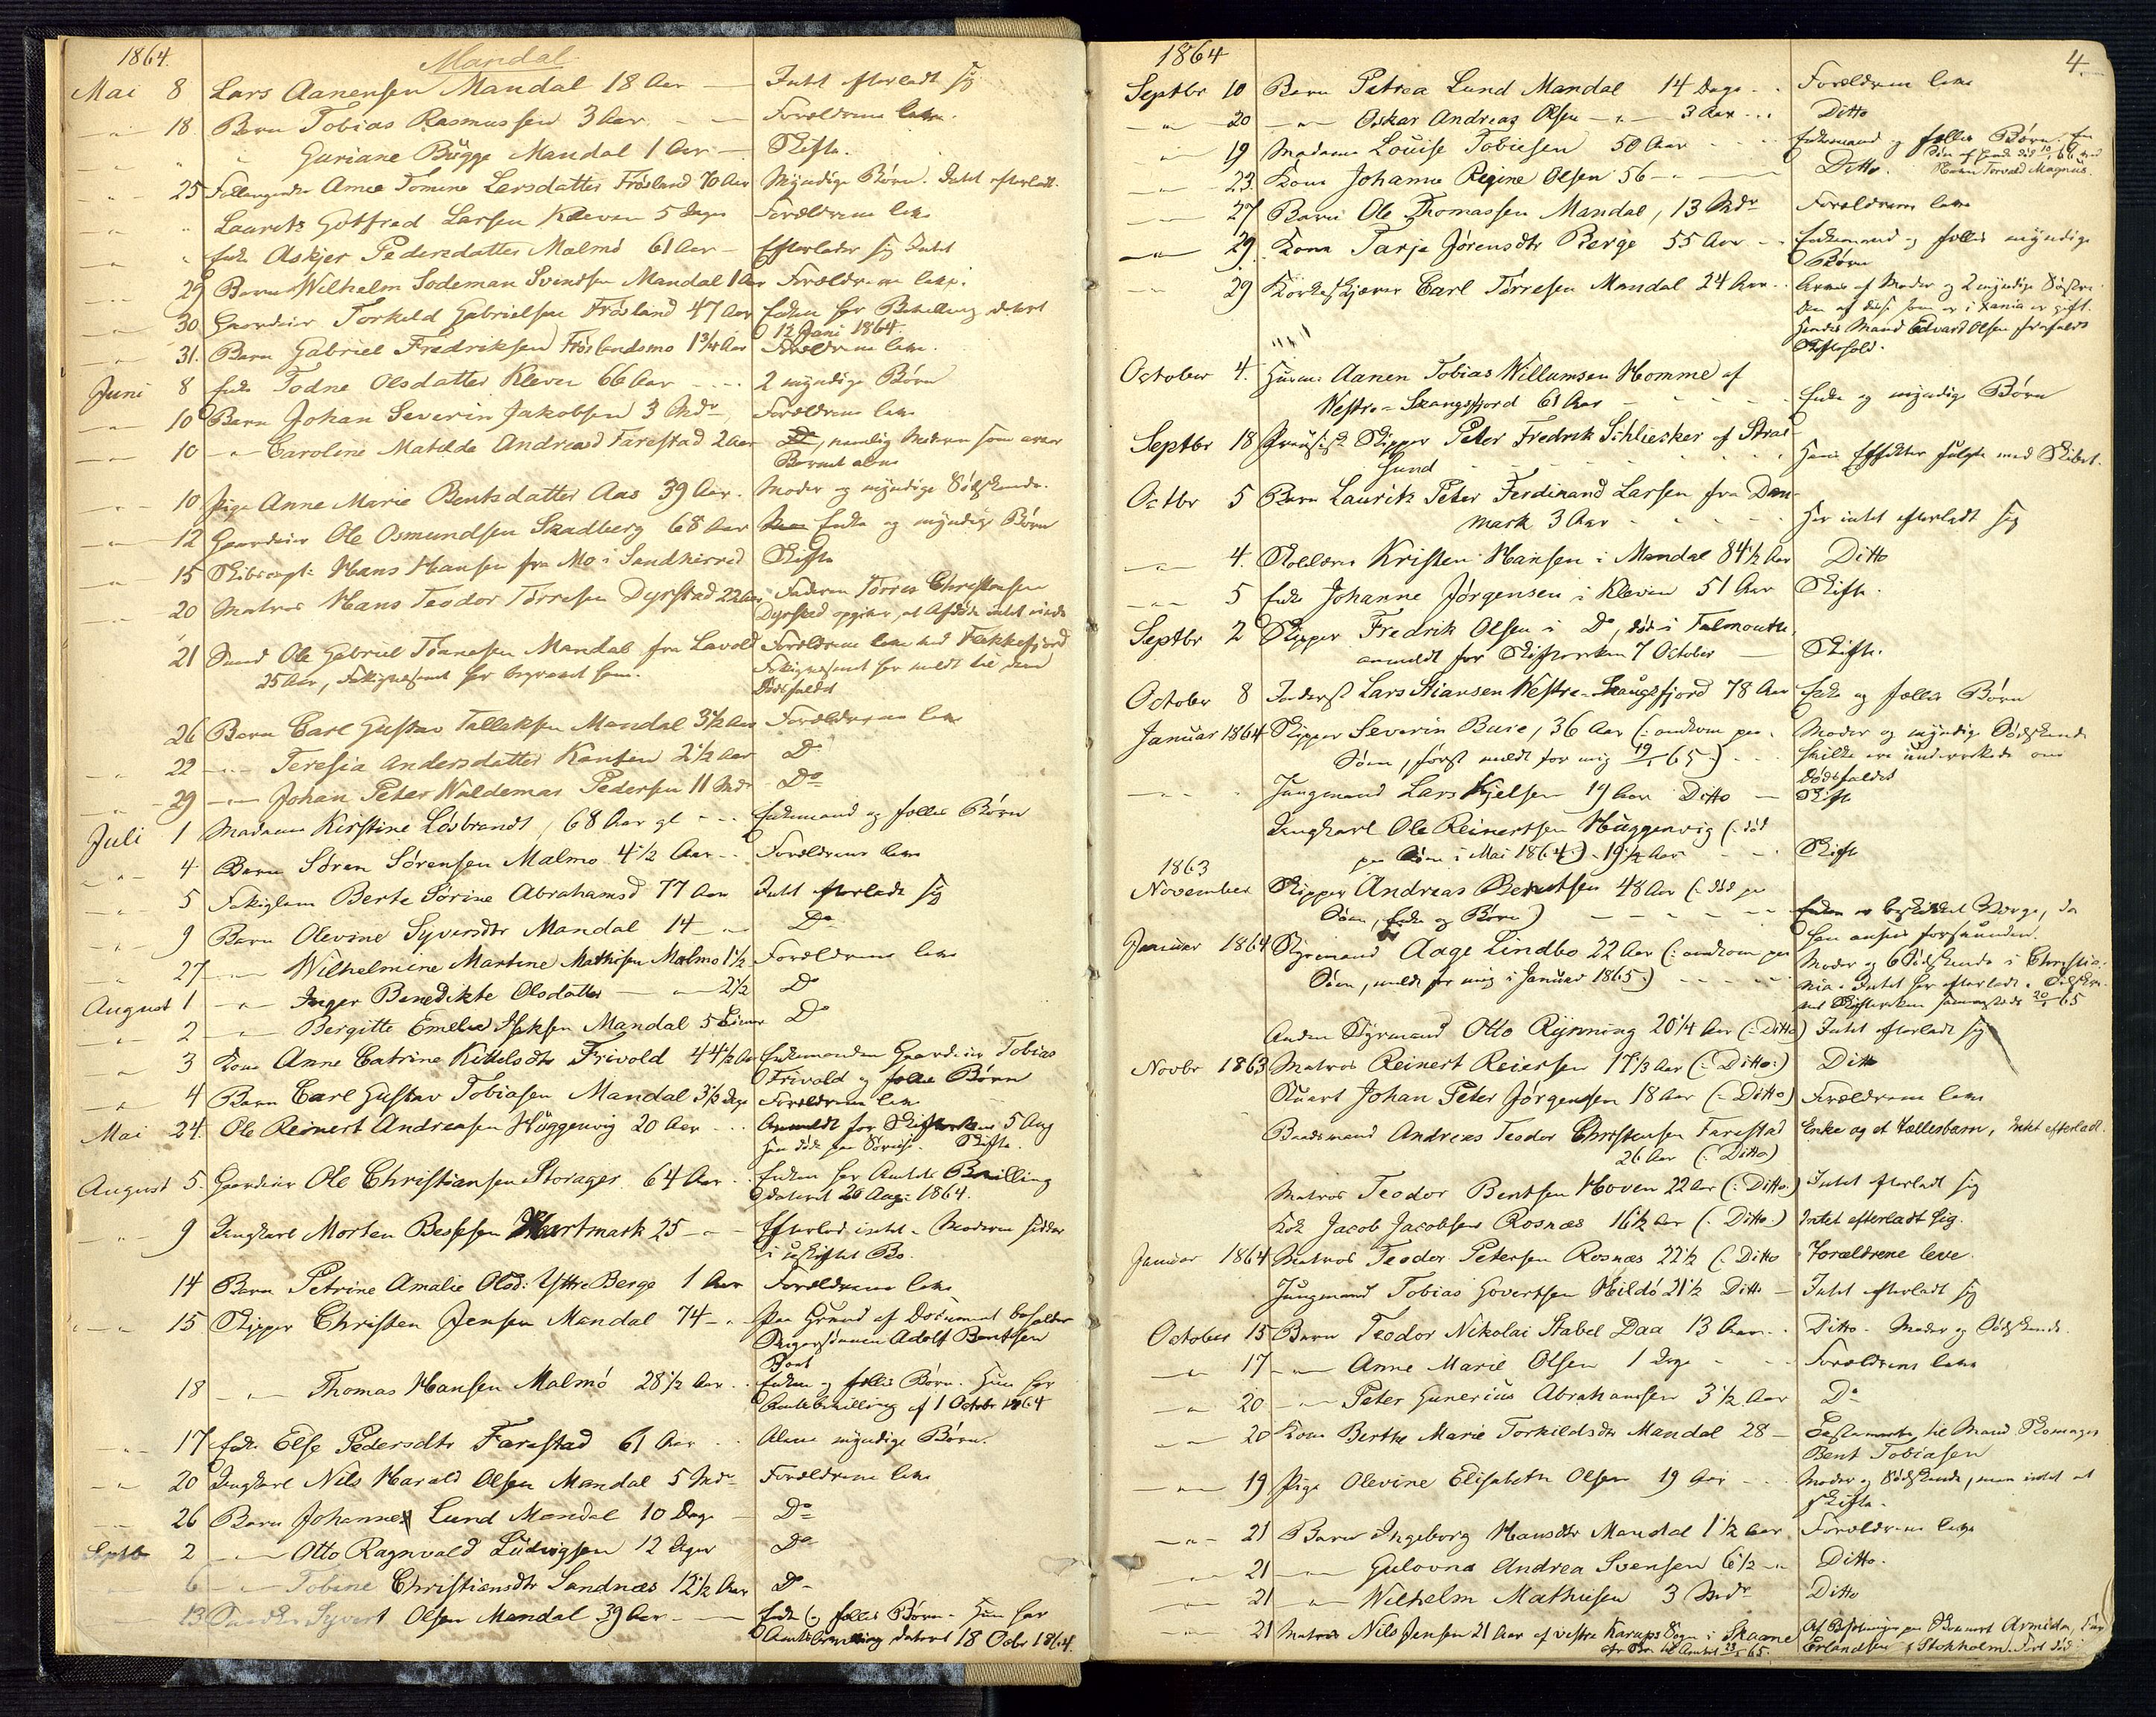 1864.
Mandal
Mai 8 Lars Aanensen Mandal 18 Aar — Intet efterladt sig
— " — 18. Barn Tobias Rasmussen 3 Aar — Forældrene leve.
" " Guriane Bügge Mandal 1 Aar — Skifte.
" 25 Anne Tomine Larsdatter Frøsland 70 Aar Myndige Børn. Intet efterladt.
" " Laurits Gotfred Larsen Kleven 5 Dage Forældrene leve
" " Enke Askjer Pedersdatter Malmö 61 Aar — Efterlader sig Intet
— 29 Barn Wilhelm Sodeman Svendsen Mandal 1 Aar Forældrene leve.
— 30 Gaardeier Torkeld Gabrielsen Frøsland 47 Aar Enken har Bevilling datert
12 Juni 1864.
— 31. Barn Gabriel Fredriksen Frøslandsmo 1¾ Aar Forældrene leve.
Juni 8 Enke Todne Olsdatter Kleven 66 Aar - - - 2 myndige Børn
— " — 10 Barn Johan Severin Jakobsen 3 Mdr Forældrene leve
— " — 10 — " — Caroline Matilde Andreasd Farestad 2 Aar Do, nemlig Moderen som
Barnet
— " — 10 Pige Anne Marie Bentsdatter Aas 39 Aar. Moder og myndige Sødskende.
— " — 12 Gaardeier Ole Osmundsen Skadberg 68 Aar Enke og myndige Børn
— " 15 Hans Hansen fra Mo i Sandherred Skifte
— " 20 Matros Hans Teodor Tørresen Dyrstad 22 Aar Faderen Tørres Christensen
Dyrstad opgiver, at Afdøde intet eiede
21 Ole Gabriel Tønnesen Mandal fra Lavold Forældrene leve ved Flekkefjord
25 Aar, Fattigvæsenet har begravet ham. Fattigvæsenet har meldt
Dødsfaldet
26 Barn Carl Gustav Tallaksen Mandal 3½ Aar Forældrene leve
— " 22 — " — Teresia Andersdatter Kanten 2½ Aar Do
— " — 29 — " — Johan Peter Waldemar Pedersen 11 Mdr Do
Juli 1 Madame Kirstine Løsbrandt, 68 Aar gl - - - Enkemand og fælles Børn
— " — 4 Barn Søren Sørensen Malmø 4½ Aar - - Forældrene leve
— " — 5 Fattiglem Berte Sørine Abrahamsd 77 Aar Intet efterladt sig
— " — 9 Barn Olevine Syversdtr Mandal 14 — " — Do
— " 27 — " — Wilhelmine Martine Mathisen Malmø 1½ Forældrene leve
August 1 — " — Inger Benedikte Olsdatter — " — 2½ Do
— " — 2 — " — Bergitte Emelie Isaksen Mandal 5 Do
— " 3 Kone Anne Catrine Kittelsdtr Frivold 44½ Aar Enkemanden Gaardeier Tobias
Frivold og fælles Børn
— " — 4 Barn Carl Gustav Tobiasen Mandal 3½ Dage Forældrene leve
Mai 24. Ole Reinert Andreasen Hüggenvig 20 Aar - - - Anmeldt for Skifteretten 5 Aug
Han døde paa Skifte.
August 5. Gaardeier Ole Christiansen Storager 64 Aar - - Enken har Amtets Bevilling
dateret 20 Aug: 1864.
— " — 9 Ungkarl Morten Hartmark 25 — " — Efterlod intet. Moderen sidder
i uskiftet Bo.
14 Barn Petrine Amalie Olsd: Yttre Berge 1 Aar Forældrene leve
— " — 15 Skipper Christen Jensen Mandal 74 — " Paa Grund af Document beholder
Adolf Bentsen
Boet
18 — " — Thomas Hansen Malmö 28½ Aar - - Enken og fælles Børn. Hun har
Amtsbevilling af 1 Octobr 1864
— " — 17 Enke Else Pedersdtr Farestad 61 Aar - - Alene myndige Børn.
— " 20 Ungkarl Nils Harald Olsen Mandal 5 Mdr Forældrene leve
— " 26 Barn Johannes Lund Mandal 10 Dage — Do
Septb 2 — " — Otto Ragnvald Ludvigsen 12 Do
— 6 — " — Tobine Christiansdtr Sandnæs 12½ Aar Do
— 13 Snedker Syvert Olsen Mandal 39 Aar — Enke og fælles Børn. Hun har
Amtsbevilling dateret 18 Octbr 1864.
1864
4.
Septbr 10 Barn Petrea Lund Mandal 14 Dage - - Forældrene leve
— " — 20 — " — Oskar Andreas Olsen — " — 3 Aar - - - Ditto
" 19 Madame Louise Tobiesen 50 Aar - - - Enkemand og fælles Børn.
Torvald Magnus.
— " — 23. Kone Johanne Regine Olsen 56 — " — Ditto.
— " 27 Barn Ole Thomassen Mandal, 13 Mdr Forældrene leve
— " — 29. Kone Tarje Jørensdtr Berge 55 Aar - - Enkemand og fælles myndige
Børn
— " 29 Carl Tørresen Mandal 24 Aar - - Arves af Moder og 2 myndige Søstre.
Den af disse som er i er gift.
Hendes Mand Edvard Olsen, frafaldt
October 4. Aanen Tobias Willumsen Homme af
Vestre-Skaugsfjord 61 Aar - - - - - Enke og myndige Børn
Septbr 18 Preusisk Skipper Peter Fredrik Schliesker af Stral-
sund - - - - - Hans Effekter fulgte med Skibet.
Octbr 5 Barn Laurits Peter Ferdinand Larsen fra Dan-
mark 3 Aar - - - - - Har intet efterladt sig
— " — 4. Kristen Hansen i Mandal 84½ Aar Ditto
— " — 5 Enke Johanne Jørgensen i Kleven 51 Aar Skifte.
Septbr 2 Skipper Fredrik Olsen i Do, død i Falmouth,
anmeldt for Skifteretten 7 October — Skifte.
October 8 Inderst Lars Stiansen Vestre-Skaugsfjord 78 Aar Enke og fælles Børn
Januar 1864 Skipper Severin Bure, 36 Aar (: omkom paa Moder og myndige Sødskende
Søen, først meldt for mig 19/1 65 :) - - -
Dødsfaldet
— " — Jungmand Lars Kjelsen 19 Aar Ditto — Skifte
Ungkarl Ole Reinertsen Hüggenvig (: død
paa Søen i Mai 1864 :) 19½ Aar - - - Skifte
1863
November Skipper Andreas Berntsen 48 Aar (: død paa
Søen, Enke og Børn) — — — — Enken er beskikket Værge, da
han ansees forsvunden.
Januar 1864 Styrmand Aage Lindbo 22 Aar (: omkom paa Moder og 6 Sødskende i Christia-
Søen, meldt for mig i Januar 1865 :) - - - - nia. Intet har efterladt.
20/1 65
Anden Styrmand Otto Rynning 20¼ Aar (: Ditto) Intet efterladt sig
Novbr 1863 Matros Reinert Reiersen 17⅓ Aar (: Ditto :) Ditto
Stuert Johan Peter Jørgensen 18 Aar (: Ditto) Forældrene leve
Baadsmand Andreas Teodor Christensen Farestad Enke og et Fællesbarn, Intet efterladt.
26 Aar (: Ditto)
Matros Teodor Bentsen Hoven 22 Aar (: Ditto.) Intet efterladt sig
Kok Jacob Jacobsen Rosnæs 16½ Aar (: Ditto.) Intet efterladt sig.
Januar 1864 Matros Teodor Petersen Rosnæs 22½ (: Ditto Forældrene leve.
Jungmand Tobias Govertsen Hildö 21½ Ditto — Intet efterladt sig
October 15 Barn Teodor Nikolai Stabel Daa 13 Aar - - Ditto. Moder og Sødskende.
— " 17 — " — Anne Marie Olsen 1 Dage - - - Forældrene leve
— " 20 — " — Peter Gunerius Abrahamsen 3½ Aar Do
— " — 20 Kone Berthe Marie Torkildsdtr Mandal 28 — Testamente til Mand Skomager
Bent Tobiasen
— " — 19 Pige Olevine Elisabeth Olsen 19 Aar - - - Moder og Sødskende, men intet at
skifte.
— " — 21 Barn Ingeborg Hansdtr Mandal 1½ Aar Forældrene leve
— " 21 — " — Gulovna Andrea Svensen 6½ — " Ditto.
— " 21 — " — Wilhelm Mathiesen 3 Mdr Ditto
— " 21 Matros Nils Jensen 21 Aar af vestre Karups Sogn i Skaane Af Besætningen paa Skonnert Armida,
23/1 65. Erlandsen af Stokholm.